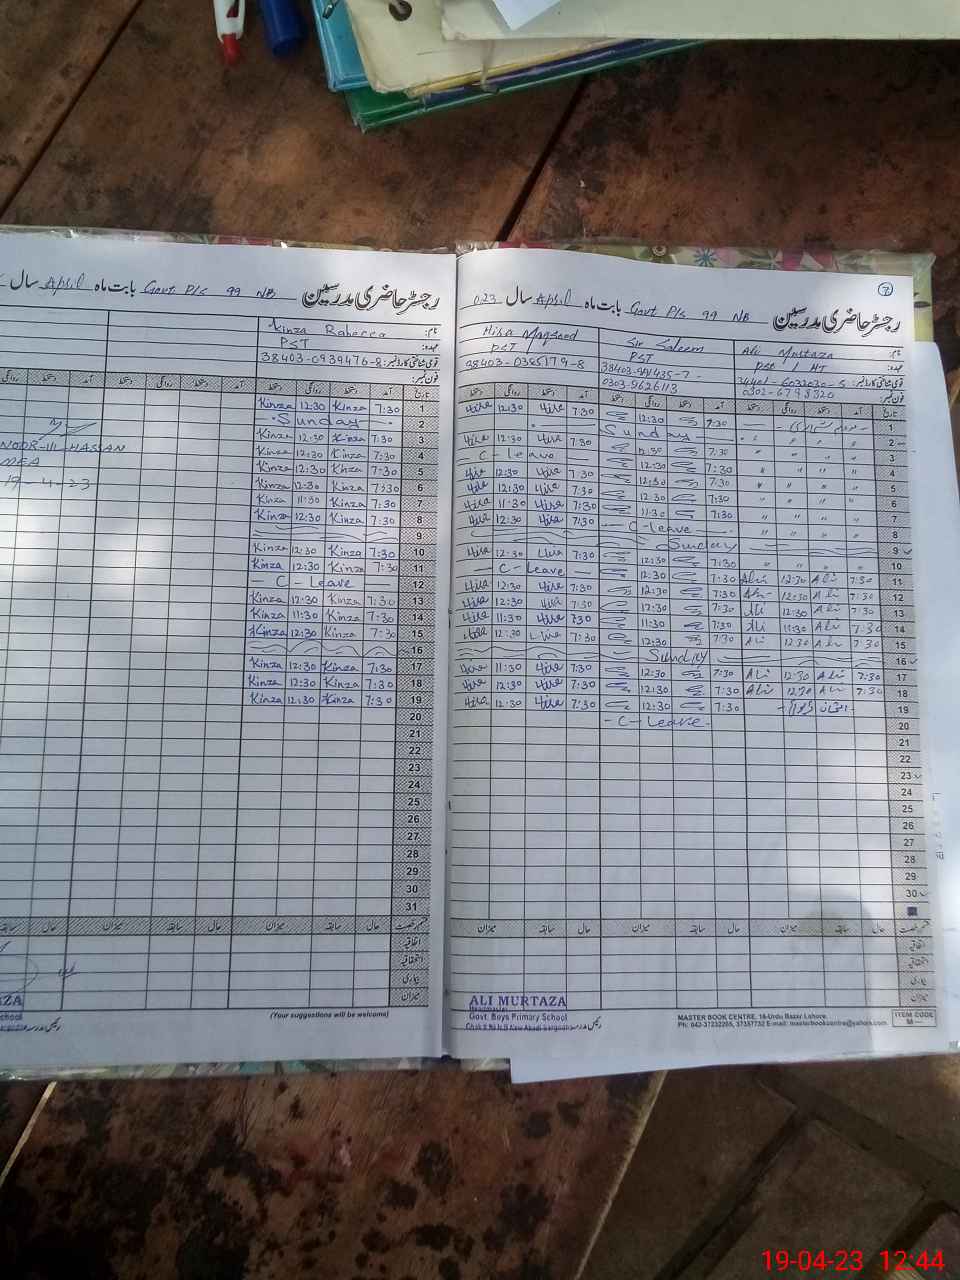 سال April بابت ماہ Govt P/s 99 NB رجسٹر حاضری مدرسین
Kinza Rabecca نام:
PST عہدہ:
38403-0939476-8 قومی شناختی کارڈ نمبر:
فون نمبر:
روانگی دستخط آمد دستخط روانگی دستخط آمد تاریخ
Kinza 12:30 Kinza 7:30 1
Sunday 2
Kinza 12:30 Kinza 7:30 3
Kinza 12:30 Kinza 7:30 4
Kinza 12:30 Kinza 7:30 5
Kinza 12:30 Kinza 7:30 6
Kinza 11:30 Kinza 7:30 7
Kinza 12:30 Kinza 7:30 8
9
Kinza 12:30 Kinza 7:30 10
Kinza 12:30 Kinza 7:30 11
C - Leave 12
Kinza 12:30 Kinza 7:30 13
Kinza 11:30 Kinza 7:30 14
Kinza 12:30 Kinza 7:30 15
16
Kinza 12:30 Kinza 7:30 17
Kinza 12:30 Kinza 7:30 18
Kinza 12:30 Kinza 7:30 19
20
21
22
23
24
25
26
27
28
29
30
31
NOOR-Ul-HASSAN
MEA
19-4-23
سابقہ حال میزان سابقہ حال میزان سابقہ حال قسم رخصت
اتفاقیہ
استحقاقیہ
بیماری
میزان
(Your suggestions will be welcome)
7
023 سال April بابت ماہ Govt P/s 99 NB رجسٹر حاضری مدرسین
Hira Maqsood Sir Saleem Ali Murtaza نام:
PST PST PST / HT عہدہ:
38403-0385179-8 34401-6032030-5 قومی شناختی کارڈ نمبر:
0303-9626113 0302-6798320 فون نمبر:
دستخط روانگی دستخط آمد دستخط روانگی دستخط آمد دستخط روانگی دستخط آمد تاریخ
Hira 12:30 Hira 7:30 12:30 7:30 1
Sunday 2
Hira 12:30 Hira 7:30 12:30 7:30 " " " " 3
C - Leave 12:30 7:30 " " " " 4
Hira 12:30 Hira 7:30 12:30 7:30 " " " " 5
Hira 12:30 Hira 7:30 12:30 7:30 " " " " 6
Hira 11:30 Hira 7:30 11:30 7:30 " " " " 7
Hira 12:30 Hira 7:30 C-Leave " " " " 8
Sunday 9
Hira 12:30 Hira 7:30 12:30 7:30 " " " " 10
C - Leave 12:30 7:30 Ali 12:30 Ali 7:30 11
Hira 12:30 Hira 7:30 12:30 7:30 Ali 12:30 Ali 7:30 12
Hira 12:30 Hira 7:30 12:30 7:30 Ali 12:30 Ali 7:30 13
Hira 11:30 Hira 7:30 11:30 7:30 Ali 11:30 Ali 7:30 14
Hira 12:30 Hira 7:30 12:30 7:30 Ali 12:30 Ali 7:30 15
Sunday 16
Hira 11:30 Hira 7:30 12:30 7:30 Ali 12:30 Ali 7:30 17
Hira 12:30 Hira 7:30 12:30 7:30 Ali 12:30 Ali 7:30 18
Hira 12:30 Hira 7:30 12:30 7:30 19
- C - Leave - 20
21
22
23
24
25
26
27
28
29
30
میزان سابقہ حال میزان سابقہ حال میزان سابقہ حال قسم رخصت
اتفاقیہ
استحقاقیہ
بیماری
میزان
ALI MURTAZA
Headmaster
Govt. Boys Primary School
رئیس مدرسہ
MASTER BOOK CENTRE, 16-Urdu Bazar Lahore.
Ph: 042-37232205, 37357732 E-mail: masterbookcentre@yahoo.com
ITEM CODE
M—
19-04-23 12:44